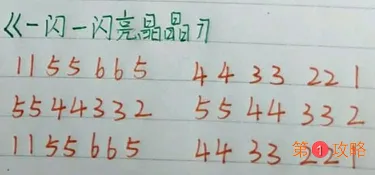 《一闪一闪亮晶晶》
1155665 4433221
5544332 5544332
1155665 4433221
第1攻略